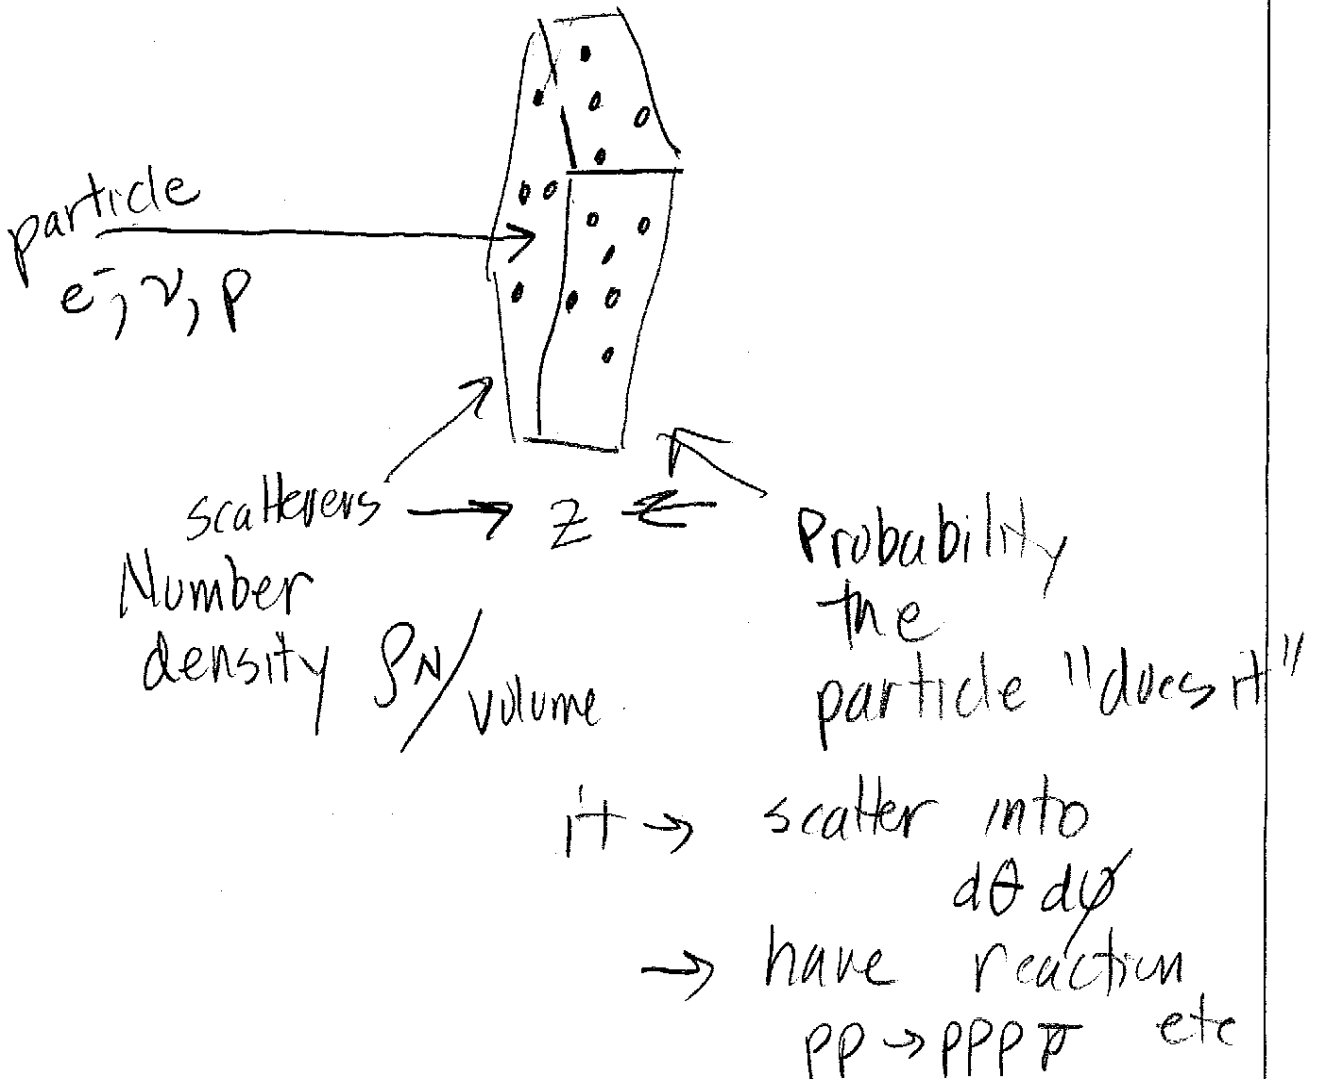 particle
e⁻, ν, p
scatterers → z ←
Number
density ρN/volume
Probability
the
particle "does it"
it → scatter into
dθ dφ
→ have reaction
pp → ppp p̅ etc